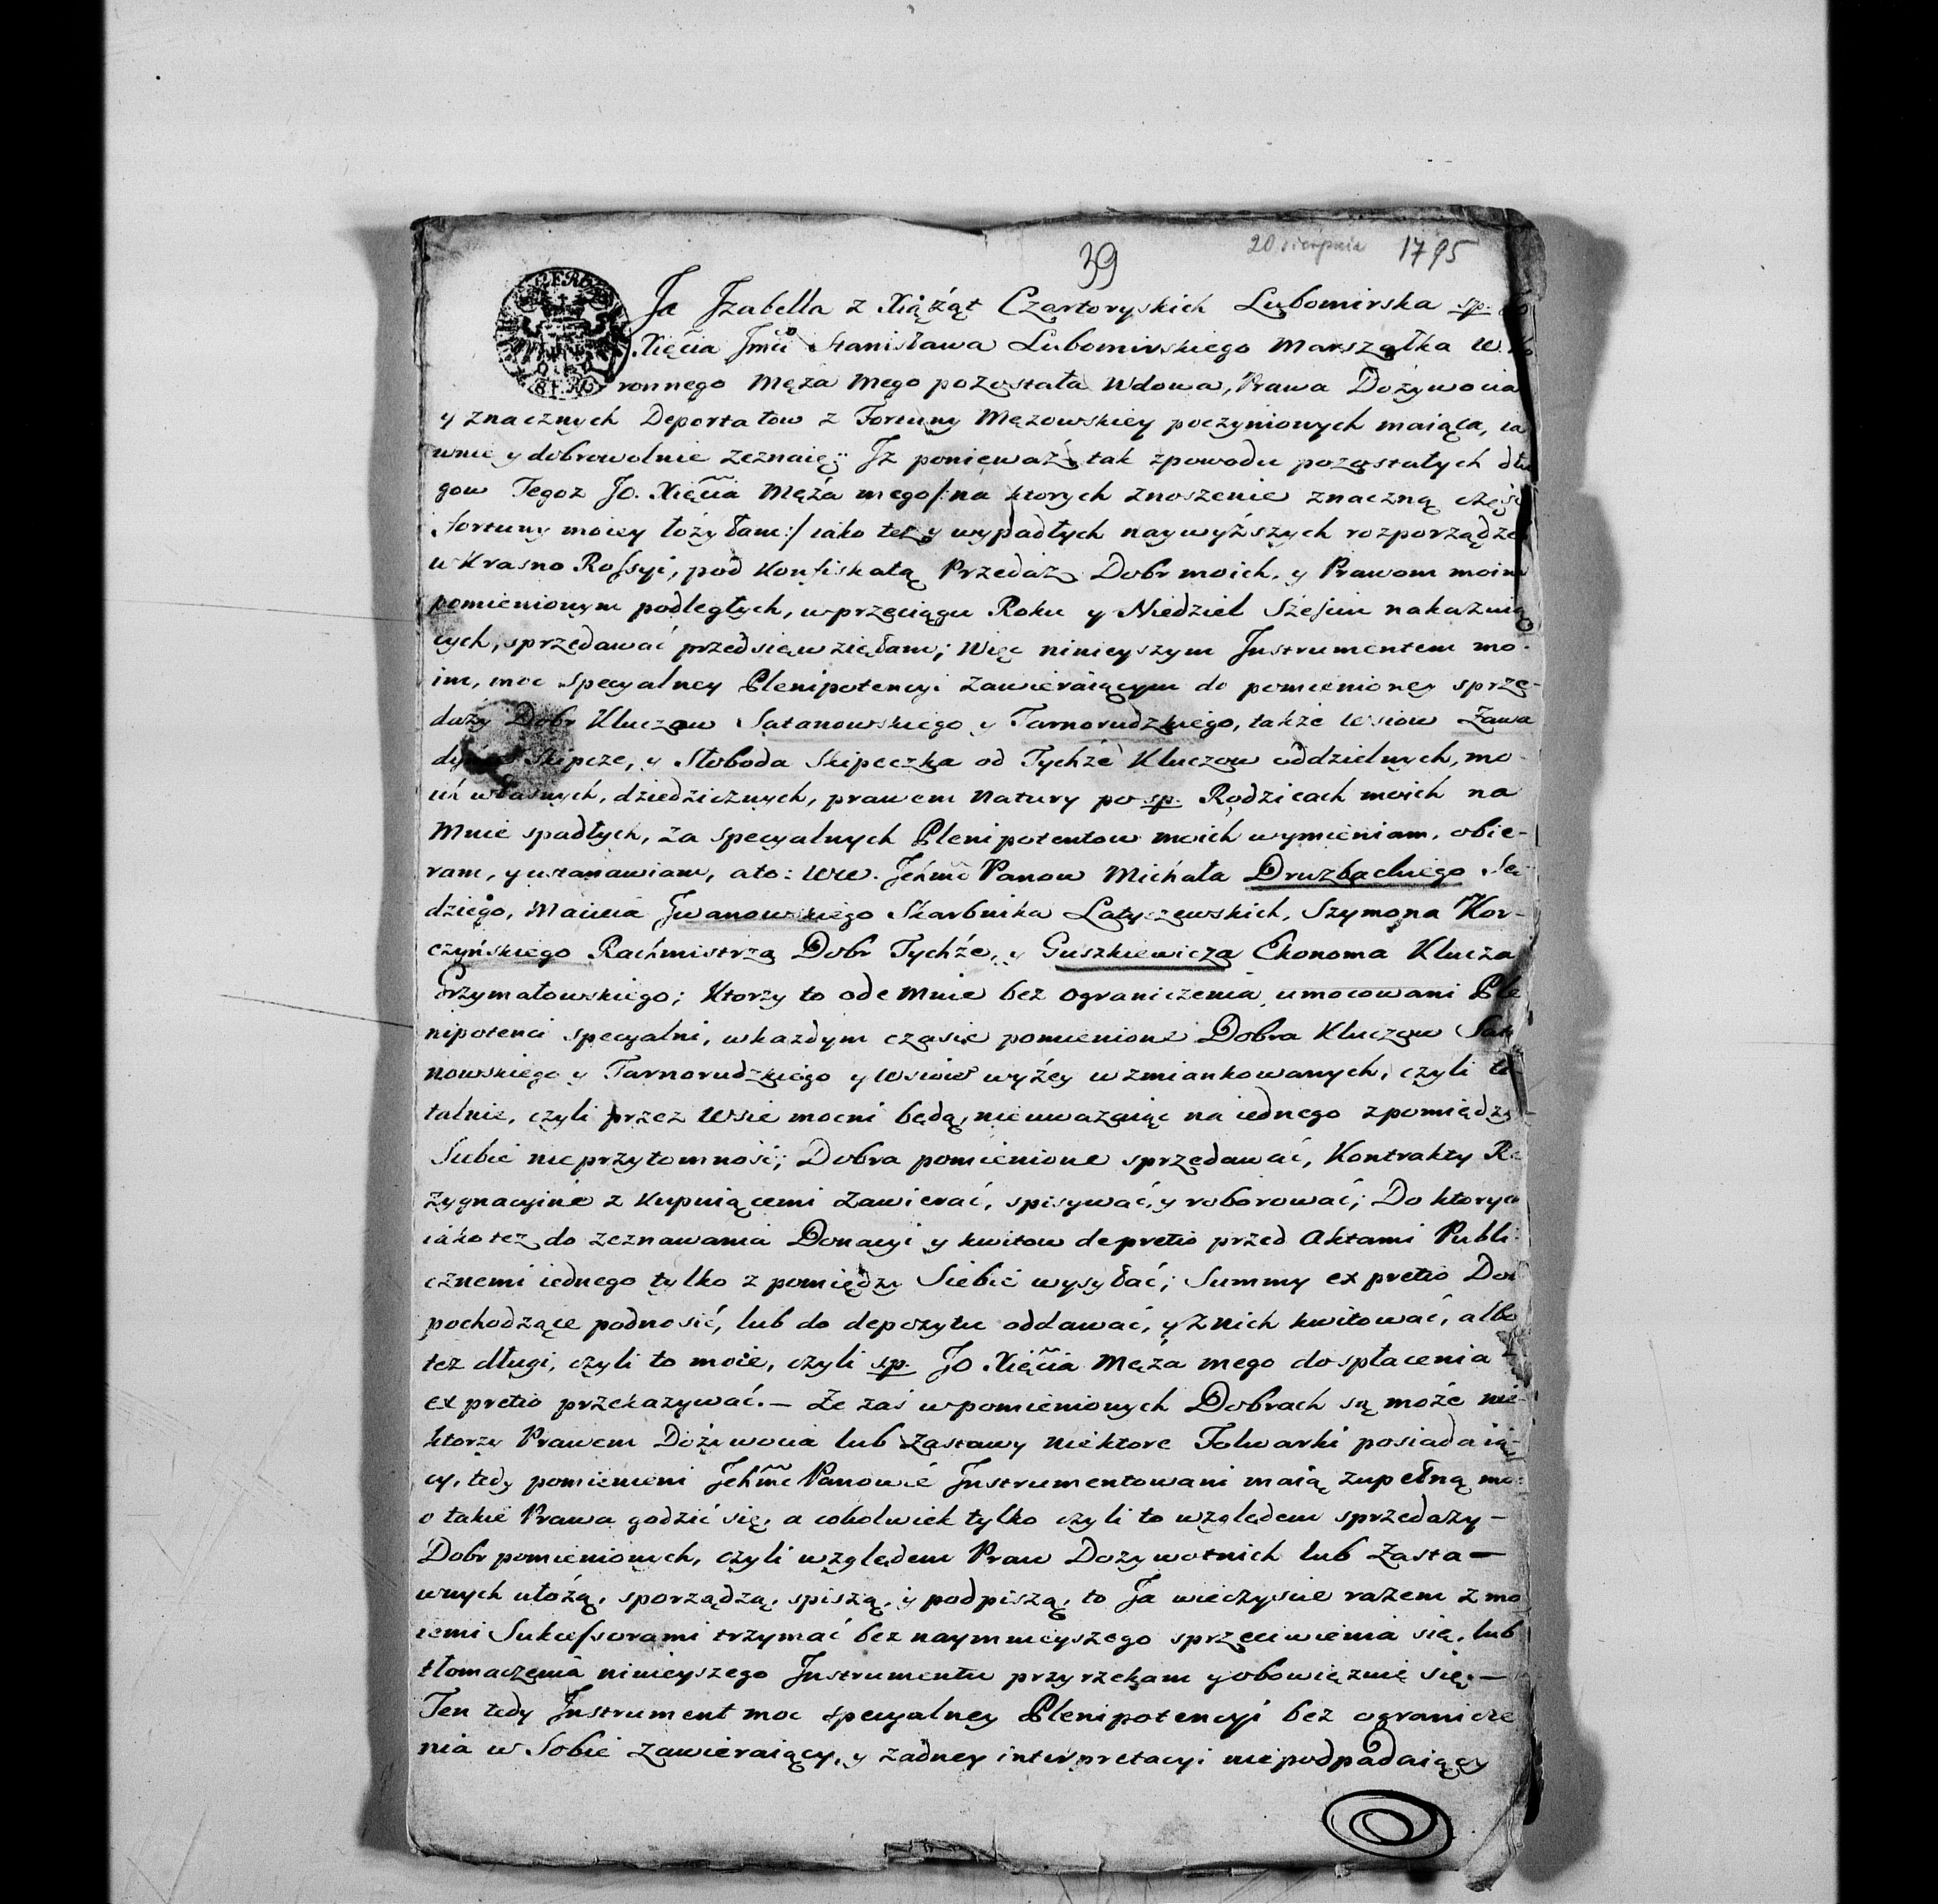 39
20 sierpnia 1795
Ja Jzabella z Xiążąt Czartoryskich Lubomirska sp.
Xięcia Jmci Stanisława Lubomirskiego Marszałka W.
ronnego Męża Mego pozostała Wdowa, Prawa Dożywocia
y znacznych Deportatow z Fortuny Mężowskiey poczynionych maiąca, ia
wnie y dobrowolnie zeznaię; Jż ponieważ tak z powodu pozostałych dłu
gow Tegoż Jo. Xięcia Męża mego /:na ktorych znoszenie znaczną część
fortuny moiey łożyłam:/ iako też y wypadłych naywyższych rozporządze
w Krasno Rossyi, pod Konfiskatą Przedaż Dobr moich, y Prawom moim
pomienionym podległych, w przeciągu Roku y Niedziel Sześciu nakazuią
cych, sprzedawać przedsięwziełam; Więc ninieyszym Jnstrumentem mo-
im, moc specyalney Plenipotencyi zawieraiącym do pomienioney sprze-
daży Dobr Kluczow Satanowskiego y Tarnorudzkiego, także Wsiow Zawa
dy Skipcze, y Słoboda Skipeczka od Tychże Kluczow oddzielnych, mo-
ich własnych, dziedzicznych, prawem Natury po sp. Rodzicach moich na
Mnie spadłych, za specyalnych Plenipotentow moich wymieniam, obie-
ram, y ustanawiam, a to: WW. Jchmć Panow Michała Druzbackiego Sę-
dziego, Macieia Jwanowskiego Skarbnika Latyczewskich, Szymona Kor-
czyńskiego Rachmistrza Dobr Tychże, y Guszkiewicza Ekonoma Klucza
Grzymałowskiego; Ktorzy to ode Mnie bez ograniczenia umocowani Ple
nipotenci specyalni, w każdym czasie pomienione Dobra Kluczow Sata
nowskiego y Tarnorudzkiego y Wsiow wyżey wzmiankowanych, czyli to
talnie, czyli przez Wsie mocni będą, nieuważaiąc na iednego z pomiędzy
Siebie nieprzytomność; Dobra pomienione sprzedawać, Kontrakty Re
zygnacyine z Kupuiącemi zawierać, spisywać, y roborować; Do ktorych
iako też do zeznawania Donacyi y kwitow de pretio przed Aktami Publi-
cznemi iednego tylko z pomiędzy Siebie wysyłać; Summy ex pretio Dobr
pochodzące podnosić, lub do depozytu oddawać, y z nich kwitować, albo
też długi, czyli to moie, czyli sp. JO Xięcia Męża mego do spłacenia
ex pretio przekazywać. — Że zaś w pomienionych Dobrach są może nie-
ktorzy Prawem Dożywocia lub Zastawy niektore Folwarki posiadaią-
cy, tedy pomienieni Jchmć Panowie Jnstrumentowani maią zupełną moc
o takie Prawa godzić się, a cokolwiek tylko czyli to względem sprzedaży —
Dobr pomienionych, czyli względem Praw Dożywotnich lub Zasta —
wnych ułożą, sporządzą, spiszą, y podpiszą, to Ja wieczyście razem z mo
iemi Sukcessorami trzymać bez naymnieyszego sprzeciwienia się, lub
tłomaczenia ninieyszego Jnstrumentu przyrzekam y obowięzuię się. —
Ten tedy Jnstrument moc specyalney Plenipotencyi bez ogranicze
nia w Sobie zawieraiący, y żadney interpretacyi niepodpadaiący